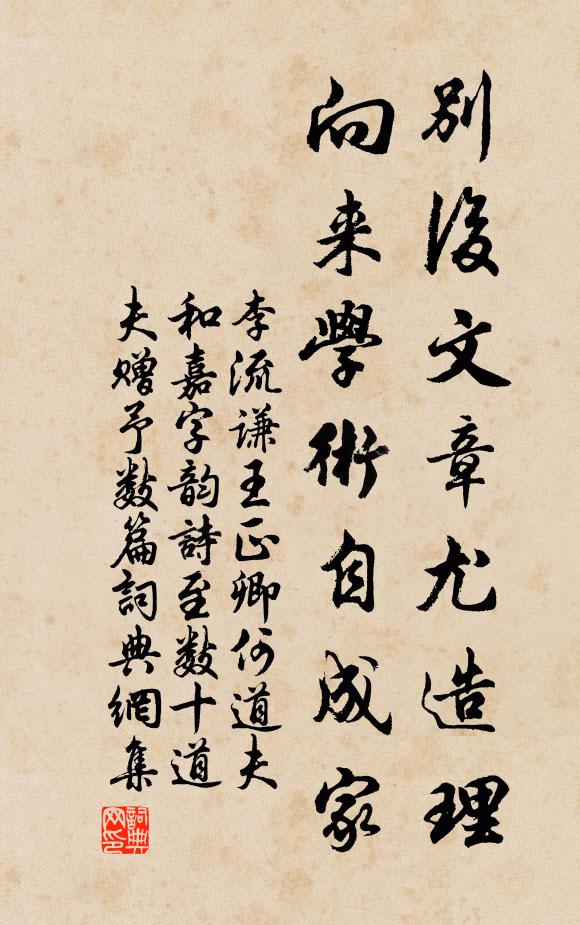 別後文章尤造理
向来學術自成家
李流謙王正卿何道夫
和嘉字韵詩至数十道
夫贈予数篇詞典網集
詞典网印